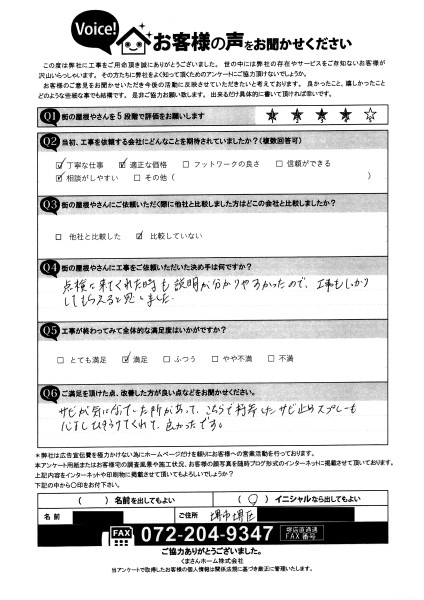 Voice!
お客様の声をお聞かせください
この度は弊社に工事をご用命頂き誠にありがとうございました。世の中には弊社の存在やサービスをご存知ないお客様が
沢山いらっしゃいます。その方たちに弊社をよく知って頂くためのアンケートにご協力頂けないでしょうか。
お客様のご意見をお聞かせいただき今後の活動に反映させていただきたいと考えております。良かったこと、嬉しかったこと
どのような些細な事でも結構です。是非ご協力お願い致します。出来るだけ具体的に書いて頂ければ幸いです。
Q1 街の屋根やさんを5段階で評価をお願いします
Q2 当初、工事を依頼する会社にどんなことを期待されていましたか?(複数回答可)
☑丁寧な仕事 ☑適正な価格 □フットワークの良さ □信頼ができる
☑相談がしやすい □その他( )
Q3 街の屋根やさんにご依頼いただく際に他社と比較しました方はどこの会社と比較しましたか?
□他社と比較した ☑比較していない
Q4 街の屋根やさんに工事をご依頼いただいた決め手は何ですか?
点検に来てくれた時も説明が分かりやすかったので、工事もしっかり
してもらえると思いました。
Q5 工事が終わってみて全体的な満足度はいかがですか?
□とても満足 ☑満足 □ふつう □やや不満 □不満
Q6 ご満足を頂けた点、改善した方が良い点などをお聞かせください。
サビが気になっていた所があって、こちらで
サビ止めスプレーも
くれて、良かったです。
*弊社は広告宣伝費を極力かけない為にホームページだけを頼りにお客様への営業活動を行っております。
本アンケート用紙またはお客様宅の調査風景や施工状況、お客様の顔写真を随時ブログ形式のインターネットに掲載させて頂いております。
上記内容をインターネットや印刷物に掲載させて頂いてもよろしいでしょうか?
下記の中から〇印をお付下さい。
( )名前を出してもよい (○)イニシャルなら出してもよい
名前 ご住所 堺市堺区
FAX 072-204-9347 堺店直通 FAX番号
ご協力ありがとうございました。
くまさんホーム株式会社
当アンケートで取得したお客様の個人情報は関係法規に基づき厳正に管理いたします。